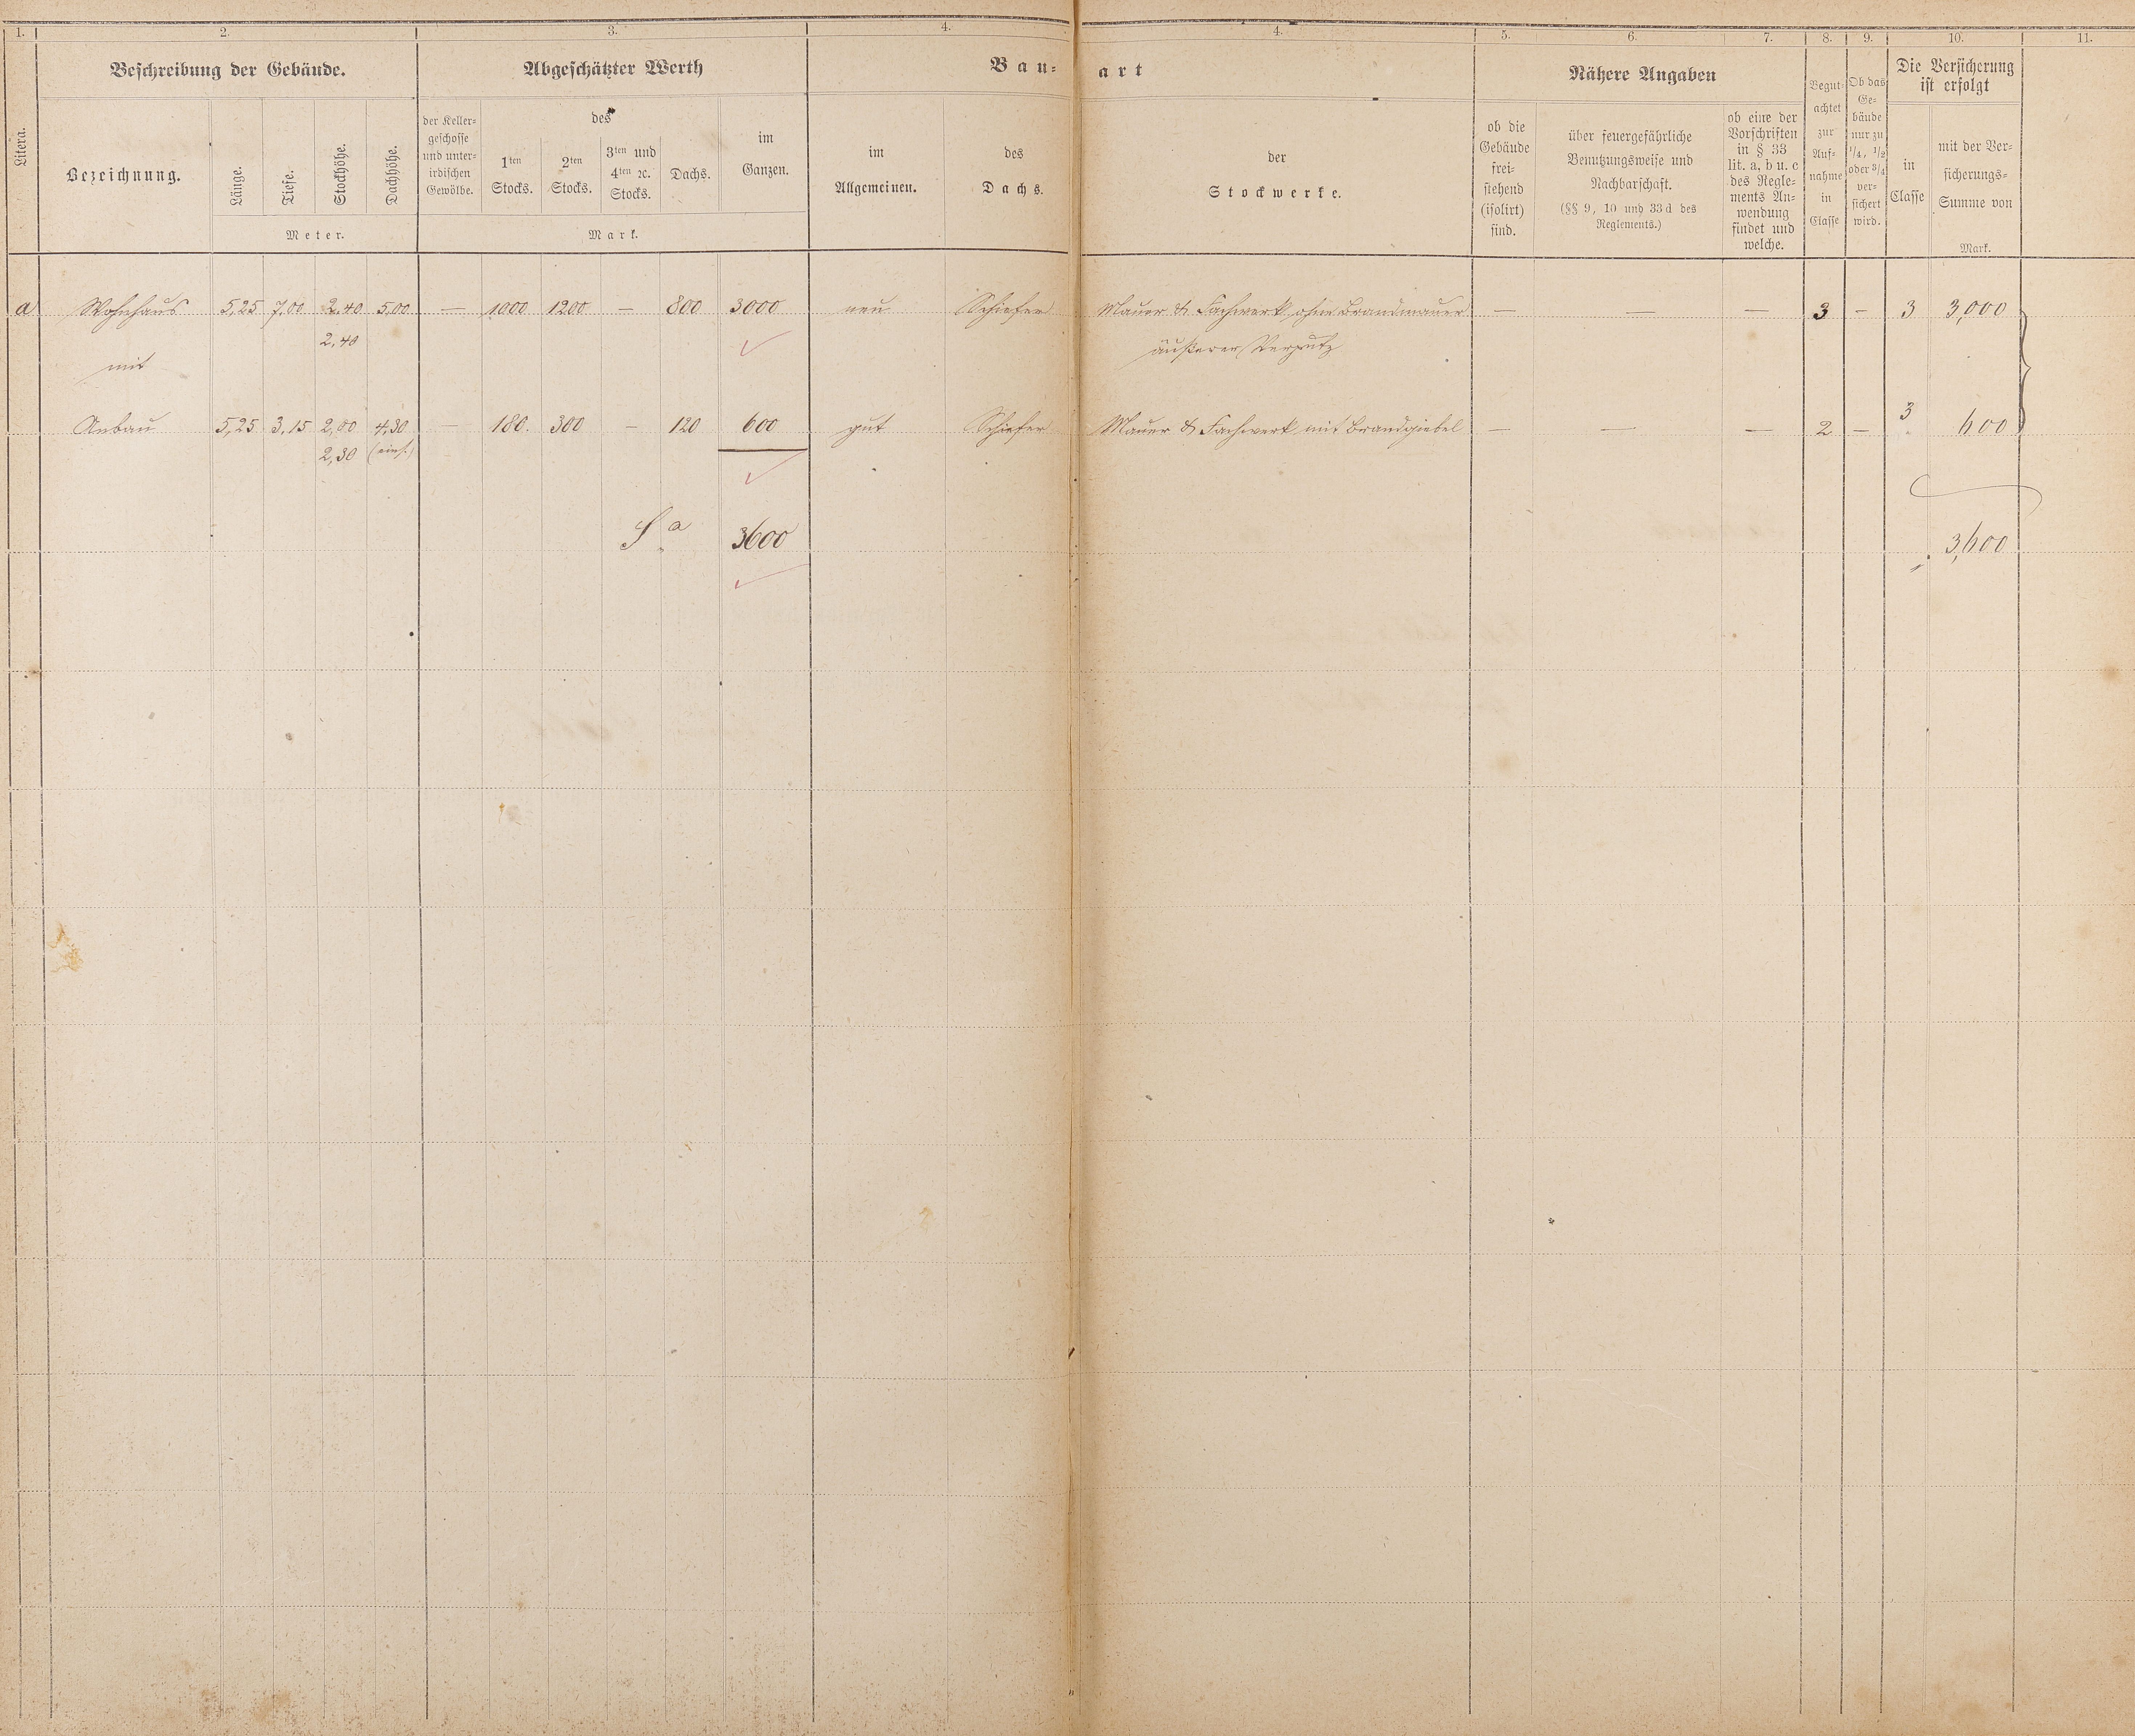 1. 2. 3. 4. 4. 5. 6. 7. 8. 9. 10. 11.
Beschreibung der Gebäude. Abgeschätzter Werth Bau- art Nähere Angaben Die Versicherung
ist erfolgt
Litera.
Bezeichnung.
Länge.
Tiefe.
Stockhöhe.
Dachhöhe.
Meter.
der Keller-
geschosse
und unter-
irdischen
Gewölbe.
des
1ten
Stocks.
2ten
Stocks.
3ten und
4ten ꝛc.
Stocks.
Dachs.
im
Ganzen.
Mark.
im
Allgemeinen.
des
Dachs.
der
Stockwerke.
ob die
Gebäude
frei-
stehend
(isolirt)
sind.
über feuergefährliche
Benutzungsweise und
Nachbarschaft.
(§§ 9, 10 und 33 d des
Reglements.)
ob eine der
Vorschriften
in § 33
lit. a, b u. c
des Regle-
ments An-
wendung
findet und
welche.
Begut-
achtet
zur
Auf-
nahme
in
Classe
Ob das
Ge-
bäude
nur zu
1/4, 1/2
oder 3/4
ver-
sichert
wird.
in
Classe
mit der Ver-
sicherungs-
Summe von
Mark.
a Wohnhaus 5,25 7,00 2,40 5,00 — 1000 1200 — 800 3000 neu Schiefer Mauer & Fachwerk ohne Brandmauer — — — 3 – 3 3,000
2,40 äußerer Verputz
mit
Anbau 5,25 3,15 2,00 4,30 — 180. 300 — 120 600 gut Schiefer Mauer & Fachwerk mit Brandgiebel — — — 2 – 3 600
2,30 (eins.)
Sa 3600 3,600